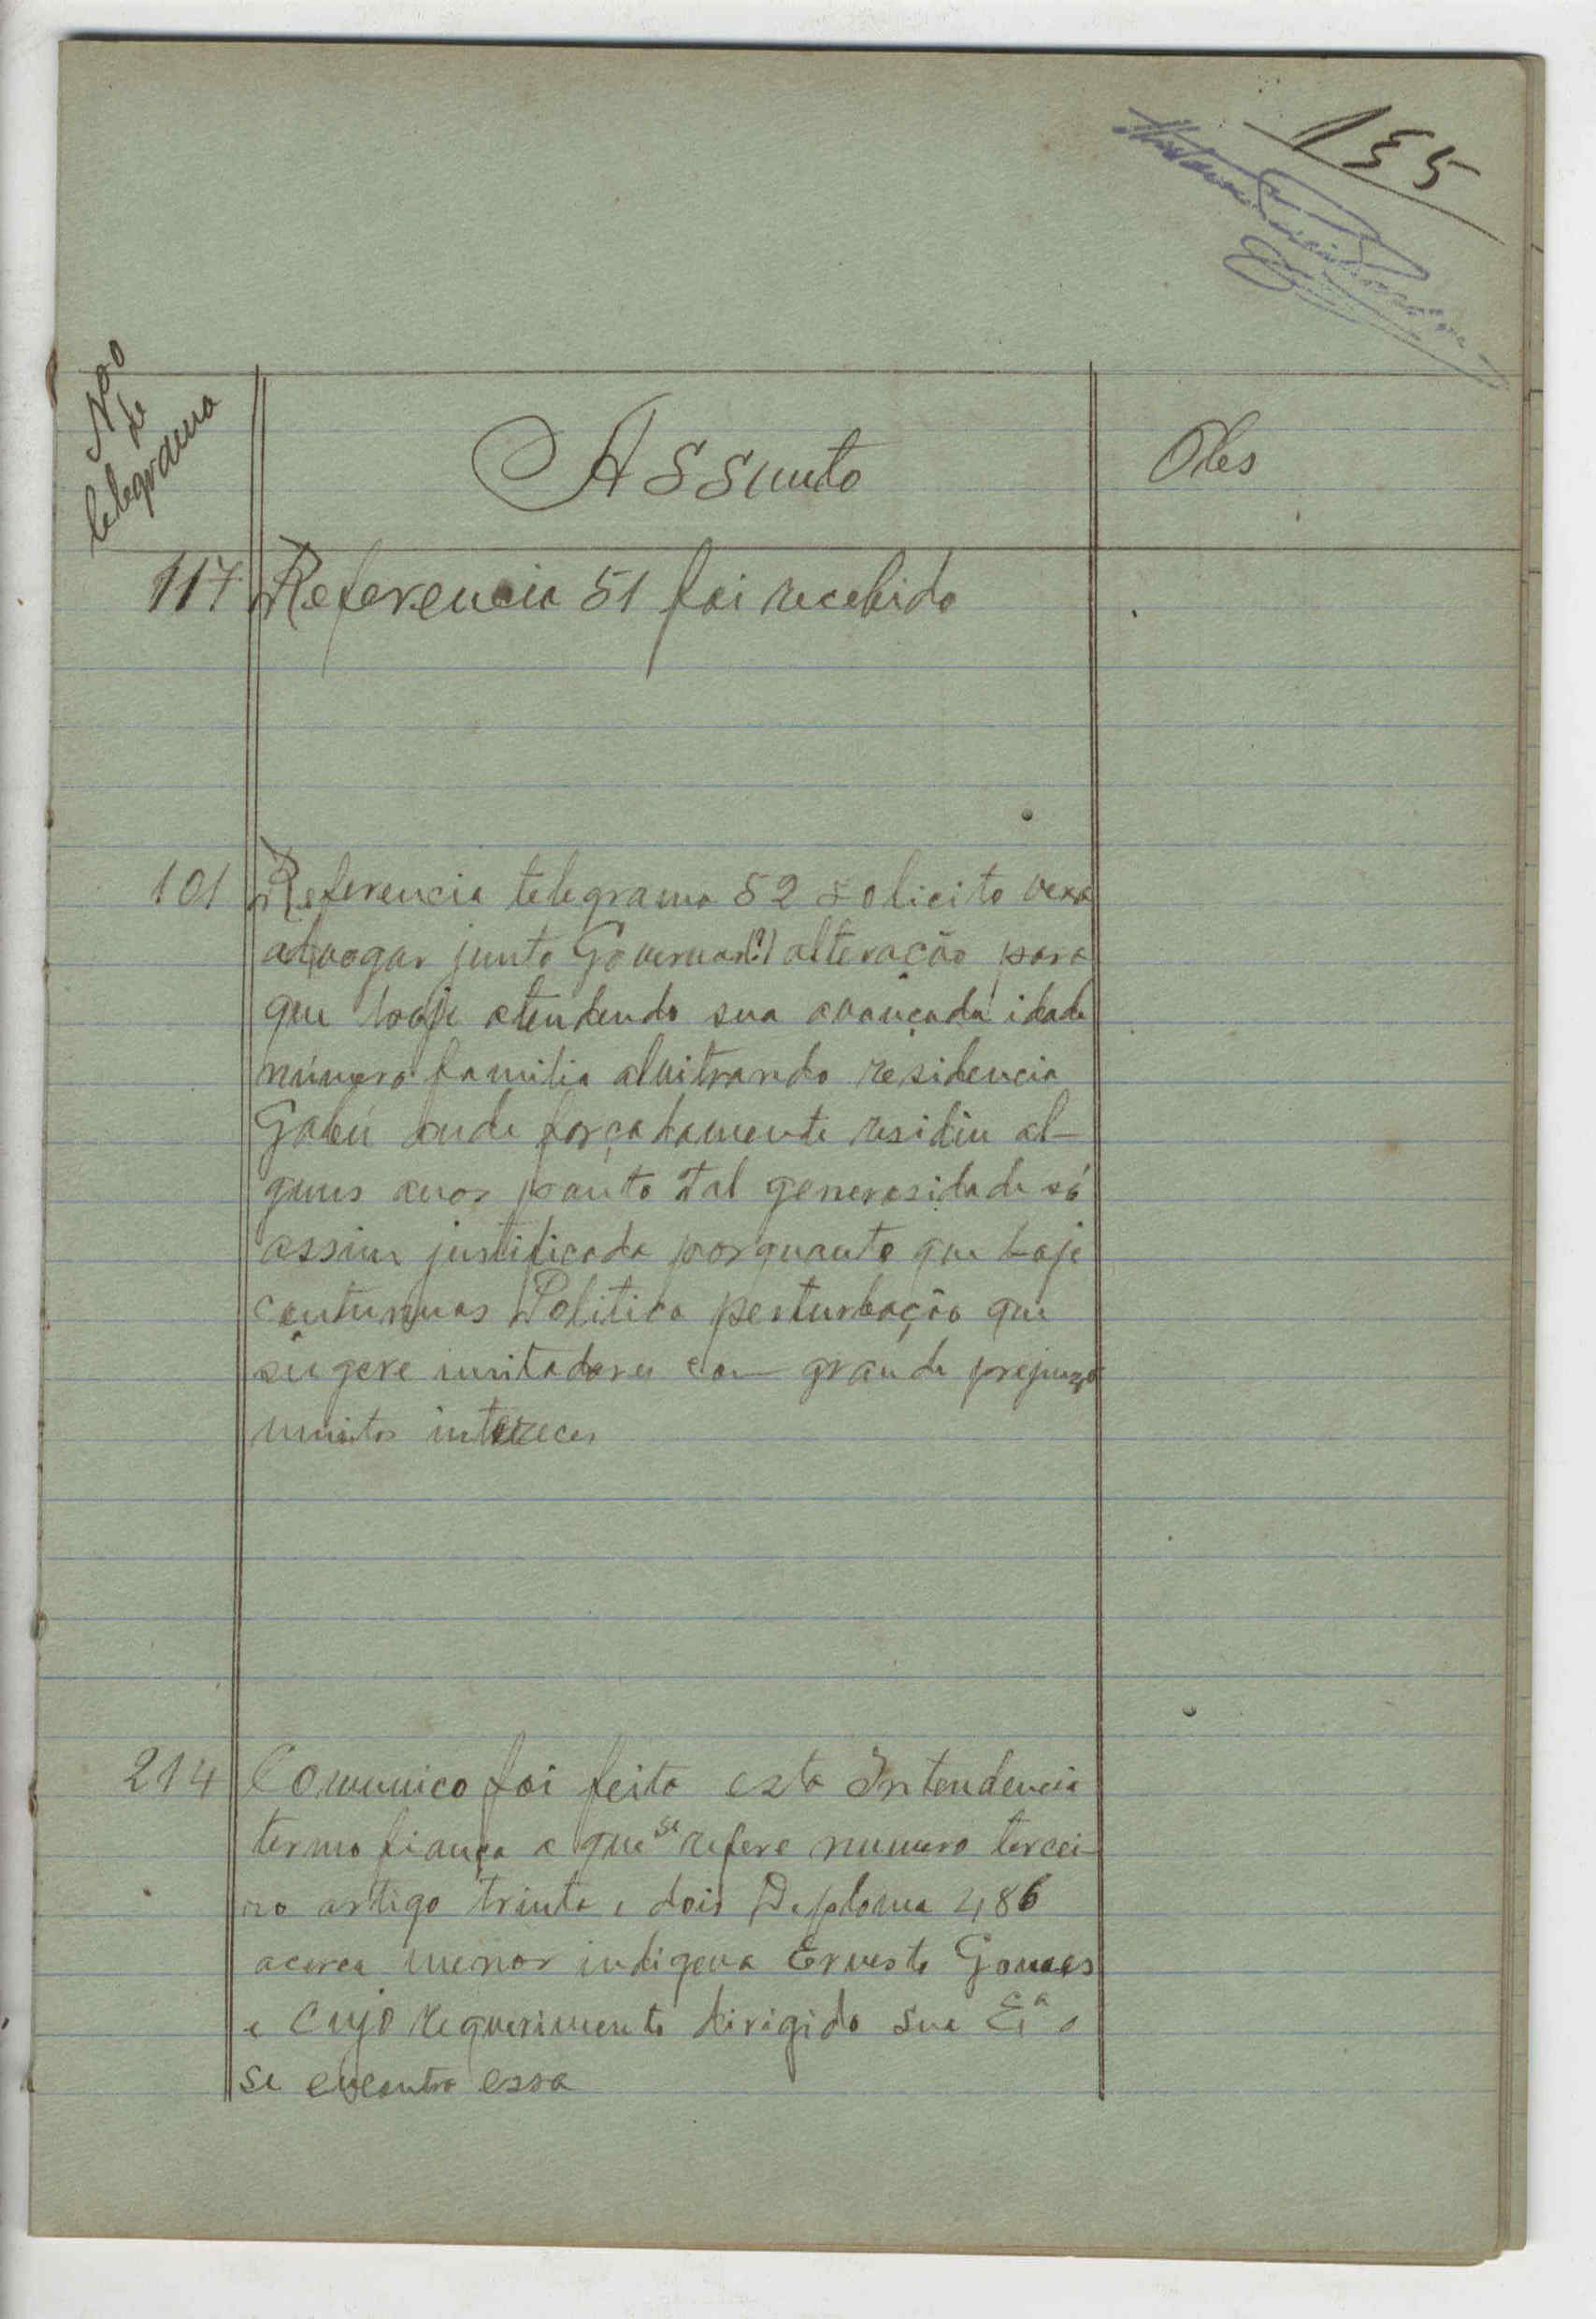 155
Nº
de
telegrama
Assunto
Obs
117 Referencia 51 foi recebido
101 Referencia telegrama 52 solicito vexa
advogar junto Governar(?) alteração para
que hoje atendendo sua avançada idade
número familia alvitrando residencia
Gabú onde forçadamente residiu al-
guns anos tal generosidade só
assim justificada porquanto que hoje
Politica perturbação que
sugere imitadores com grande prejuizo
muitos
214 Comunico foi feito esta Intendencia
termo fiança a que se refere numero tercei-
ro artigo trinta e dois Deploma 486
acerca menor indigena Ernesto Gomes
e cujo requerimento dirigido Sua Eª
se encontra essa